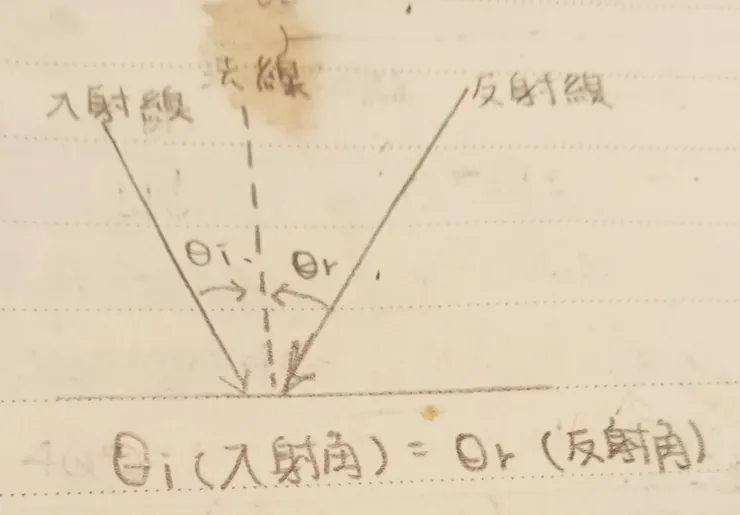 法線
入射線
反射線
θi
θr
θi(入射角) = θr(反射角)